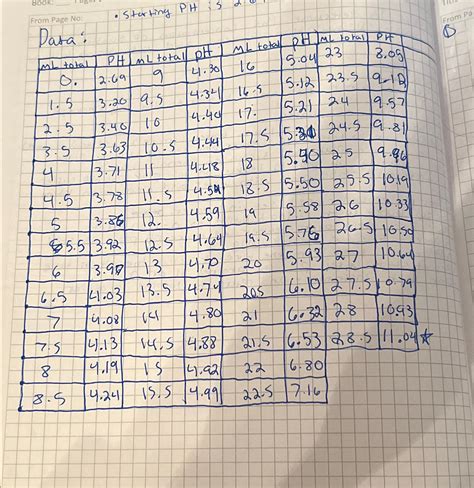 From Page No:
• Starting PH is
Data:
mL total PH mL total pH mL total pH mL total PH
0. 2.69 9 4.30 16 5.04 23 8.05
1.5 3.20 9.5 4.34 16.5 5.12 23.5 9.12
2.5 3.46 10 4.40 17. 5.21 24 9.57
3.5 3.63 10.5 4.44 17.5 5.30 24.5 9.81
4 3.71 11 4.48 18 5.40 25 9.96
4.5 3.78 11.5 4.54 18.5 5.50 25.5 10.19
5 3.86 12. 4.59 19 5.58 26 10.33
5.5 3.92 12.5 4.64 19.5 5.76 26.5 10.50
6 3.97 13 4.70 20 5.93 27 10.64
6.5 4.03 13.5 4.74 205 6.10 27.5 10.79
7 4.08 14 4.80 21 6.32 28 10.93
7.5 4.13 14.5 4.88 21.5 6.53 28.5 11.04
8 4.19 15 4.92 22 6.80
8.5 4.24 15.5 4.99 22.5 7.16